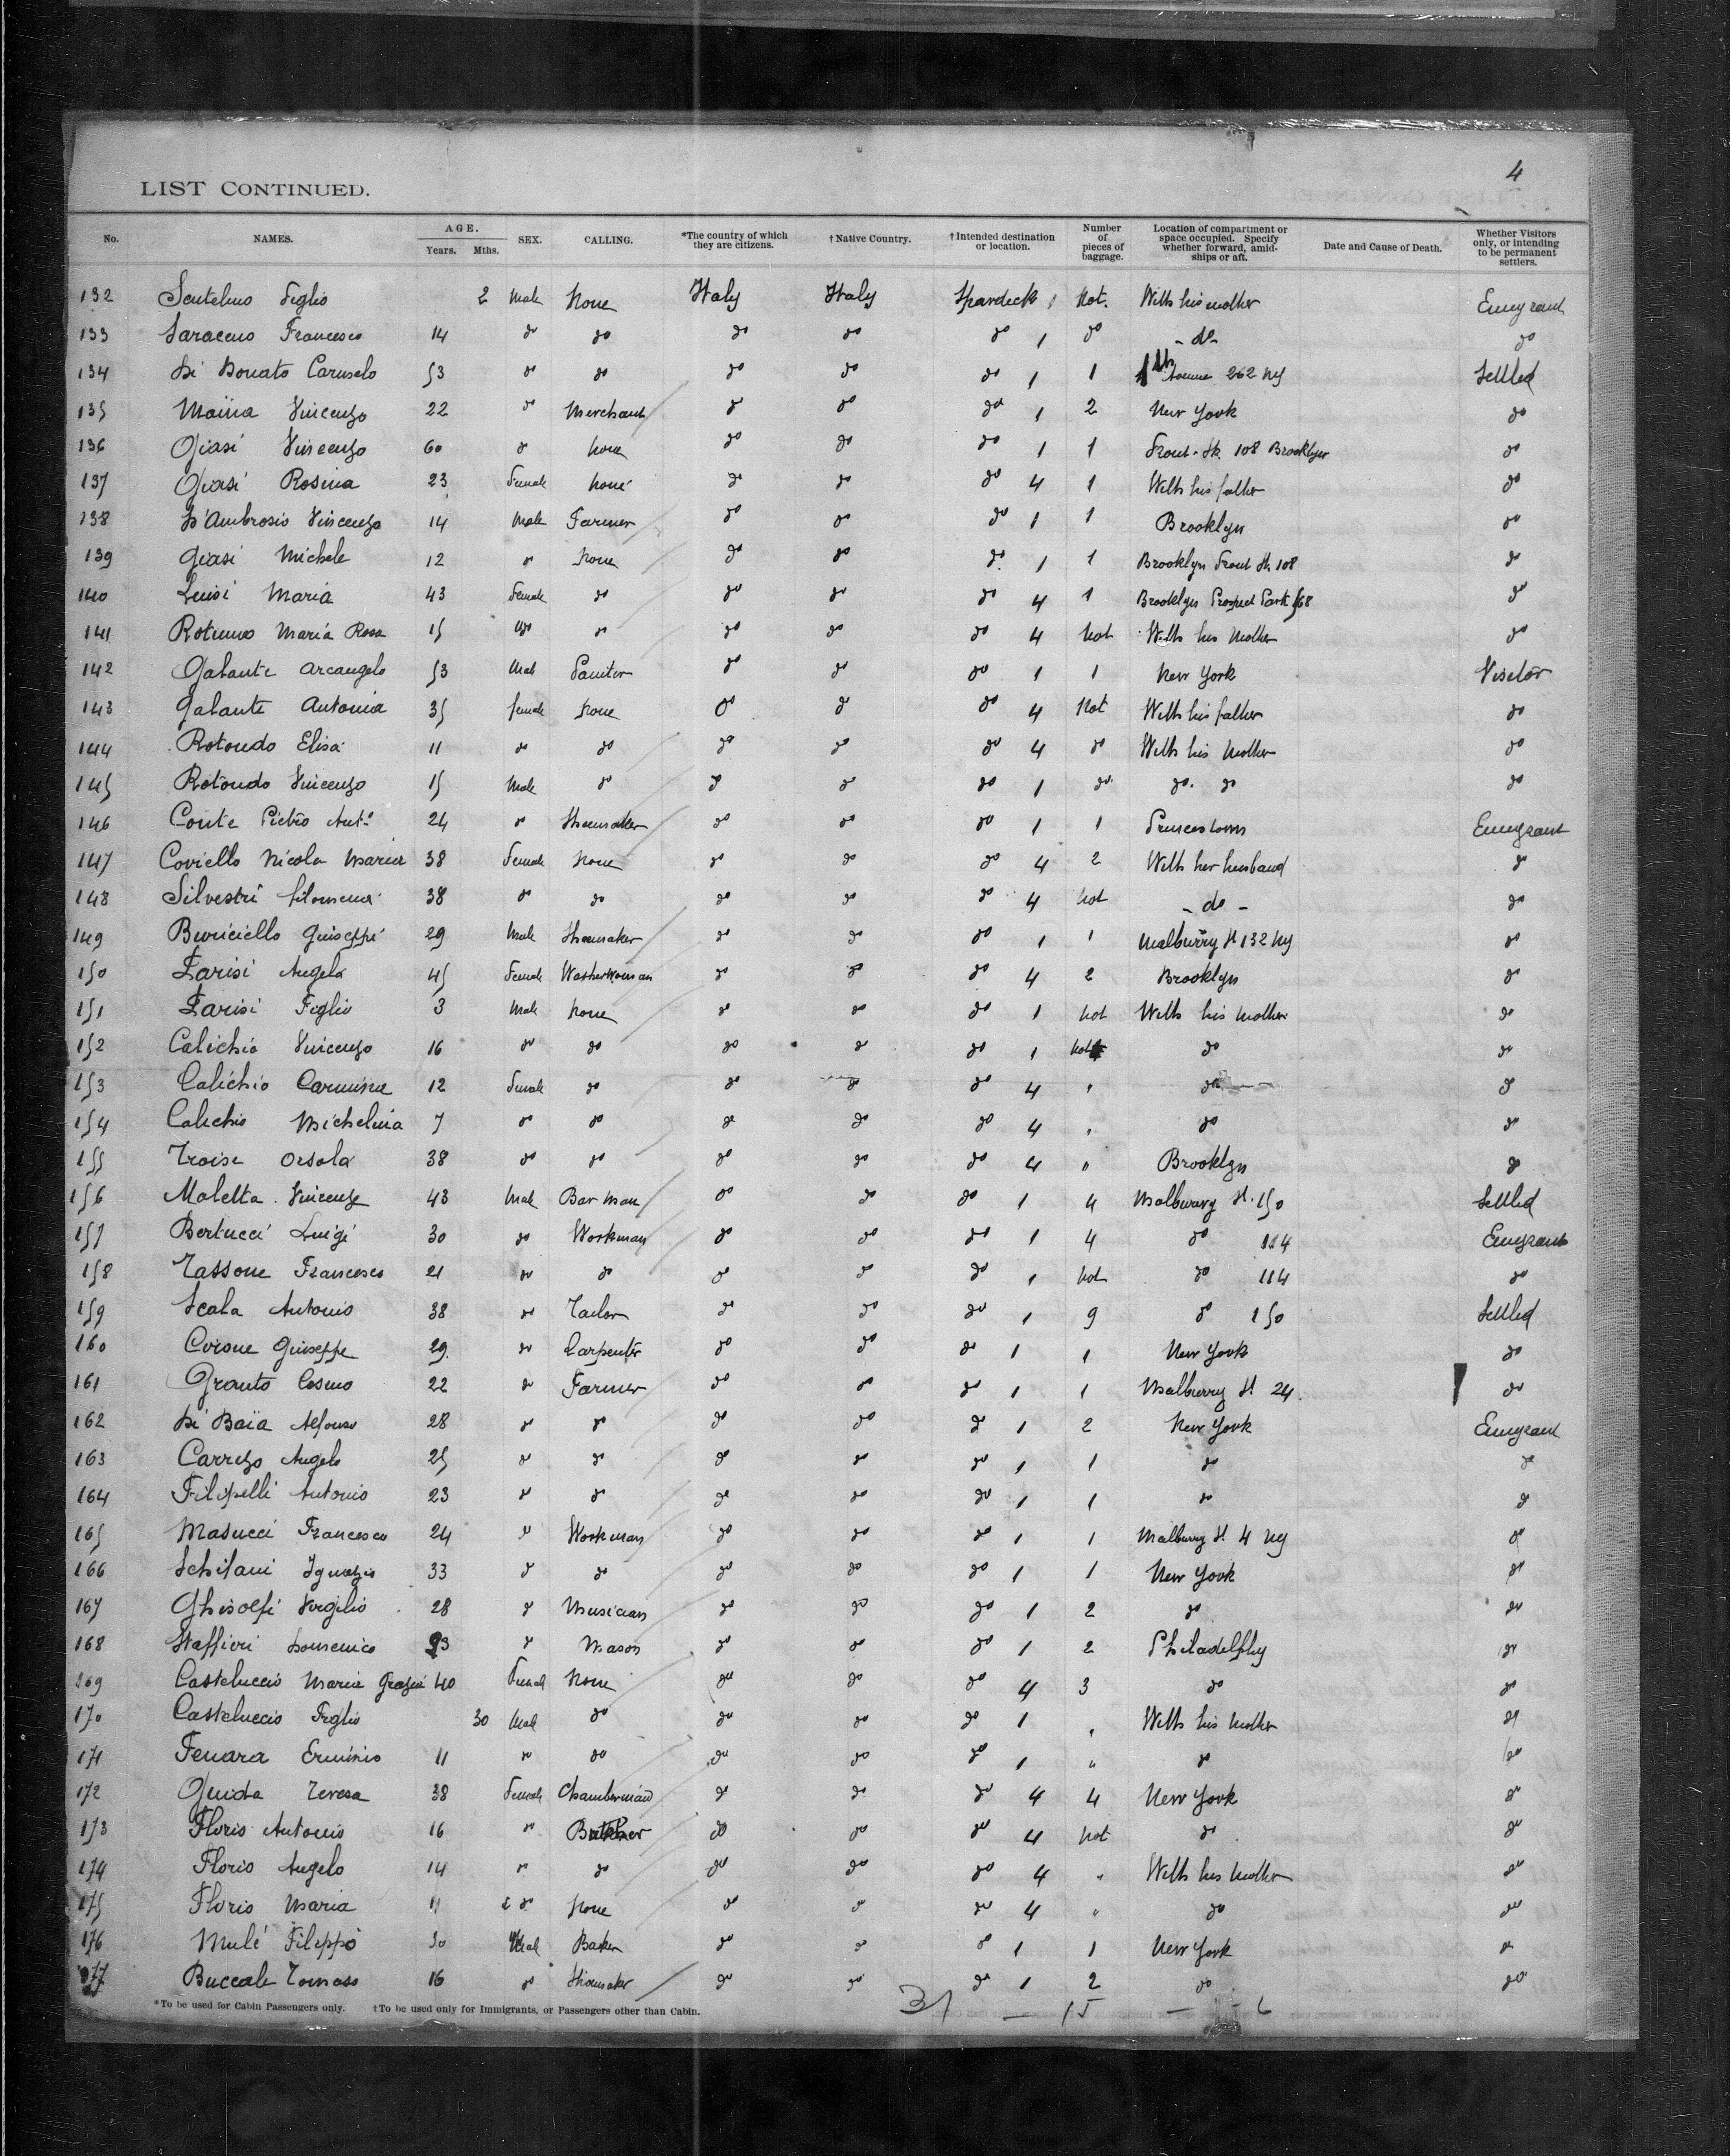 4
LIST CONTINUED.
No. NAMES. AGE. Years. Mths. SEX. CALLING. *The country of which they are citizens. †Native Country. †Intended destination or location. Number of pieces of baggage. Location of compartment or space occupied. Specify whether forward, amidships or aft. Date and Cause of Death. Whether Visitors only, or intending to be permanent settlers.
132 Figlio 2 Male None Italy Italy Spardeck 1 Not. With his mother Emigrant
133 Saraceno Francesco 14 do do do do do 1 do - do - do
134 Di Donato Caruselo 53 do do do do do 1 1 Avenue 262 NY Settled
135 Maiina Vincenzo 22 do Merchant do do do 1 2 New York do
136 Giasi Vincenzo 60 do None do do do 1 1 Front St. 108 Brooklyn do
137 Giasi Rosina 23 Female None do do do 4 1 With his father do
138 D'Ambrosio Vincenzo 14 Male Farmer do do do 1 1 Brooklyn do
139 Giasi Michele 12 do None do do do 1 1 Brooklyn Front St. 108 do
140 Luisi Maria 43 Female do do do do 4 1 Brooklyn Prospect Park 568 do
141 Rotunno Maria Rosa 15 do do do do do 4 Not With his Mother do
142 Galante Arcangelo 53 Male do do do 1 1 New York Visitor
143 Galante Antonia 35 female None do do do 4 Not With his father do
144 Rotondo Elisa 11 do do do do do 4 do With his Mother do
145 Rotondo Vincenzo 15 Male do do do do 1 do do. do do
146 Conte Pietro Ant.o 24 do Shoemaker do do do 1 1 Princestown Emigrant
147 Coviello Nicola Maria 38 Female None do do do 4 2 With her husband do
148 Silvestri Filomena 38 do do do do do 4 Not - do - do
149 Buriciello Giuseppe 29 Male Shoemaker do do do 1 1 Malburry St 132 NY do
150 Larisi Angela 45 Female Washerwoman do do do 4 2 Brooklyn do
151 Larisi Figlio 3 Male None do do do 1 Not With his Mother do
152 Calichio Vincenzo 16 do do do do do 1 Not do do
153 Calichio Carmine 12 Female do do do do 4 " do do
154 Calichio Michelina 7 do do do do do 4 " do do
155 Troise Orsola 38 do do do do do 4 " Brooklyn do
156 Moletta Vincenzo 43 Male Bar man do do do 1 4 Malburry St. 150 Settled
157 Bertucci Luigi 30 do Workman do do do 1 4 do 114 Emigrant
158 Tassone Francesco 21 do do do do do 1 Not do 114 do
159 Scala Antonio 38 do Tailor do do do 1 9 do 150 Settled
160 Cirone Giuseppe 29 do Carpenter do do do 1 1 New York do
161 Granto Cosmo 22 do Farmer do do do 1 1 Malburry St 24. do
162 Di Baïa Alfonso 28 do do do do do 1 2 New York Emigrant
163 Carrizo Angelo 25 do do do do do 1 1 do do
164 Filipelli Antonio 23 do do do do do 1 1 do do
165 Masucci Francesco 24 do Workman do do do 1 1 Malburry St. 4 NY do
166 Schifani Ignazio 33 do do do do do 1 1 New York do
167 Ghisolfi Virgilio 28 do Musician do do do 1 2 do do
168 Staffieri Domenico 23 do Mason do do do 1 2 Philadelphy do
169 Casteluccio Maria Grazia 40 Female None do do do 4 3 do do
170 Casteluccio Figlio 30 Male do do do do 1 " With his Mother do
171 Ferrara Erminio 11 do do do do do 1 " do do
172 Guida Teresa 38 Female Chambermaid do do do 4 4 New York do
173 Florio Antonio 16 do Butcher do do do 4 Not do do
174 Florio Angelo 14 do do do do do 4 " With his Mother do
175 Florio Maria 11 do None do do do 4 " do do
176 Mulé Filippo 30 Male Baker do do do 1 1 New York do
177 Buccale Tomaso 16 do Shoemaker do do do 1 2 do do
*To be used for Cabin Passengers only. †To be used only for Immigrants, or Passengers other than Cabin.
31 — 15 — 6